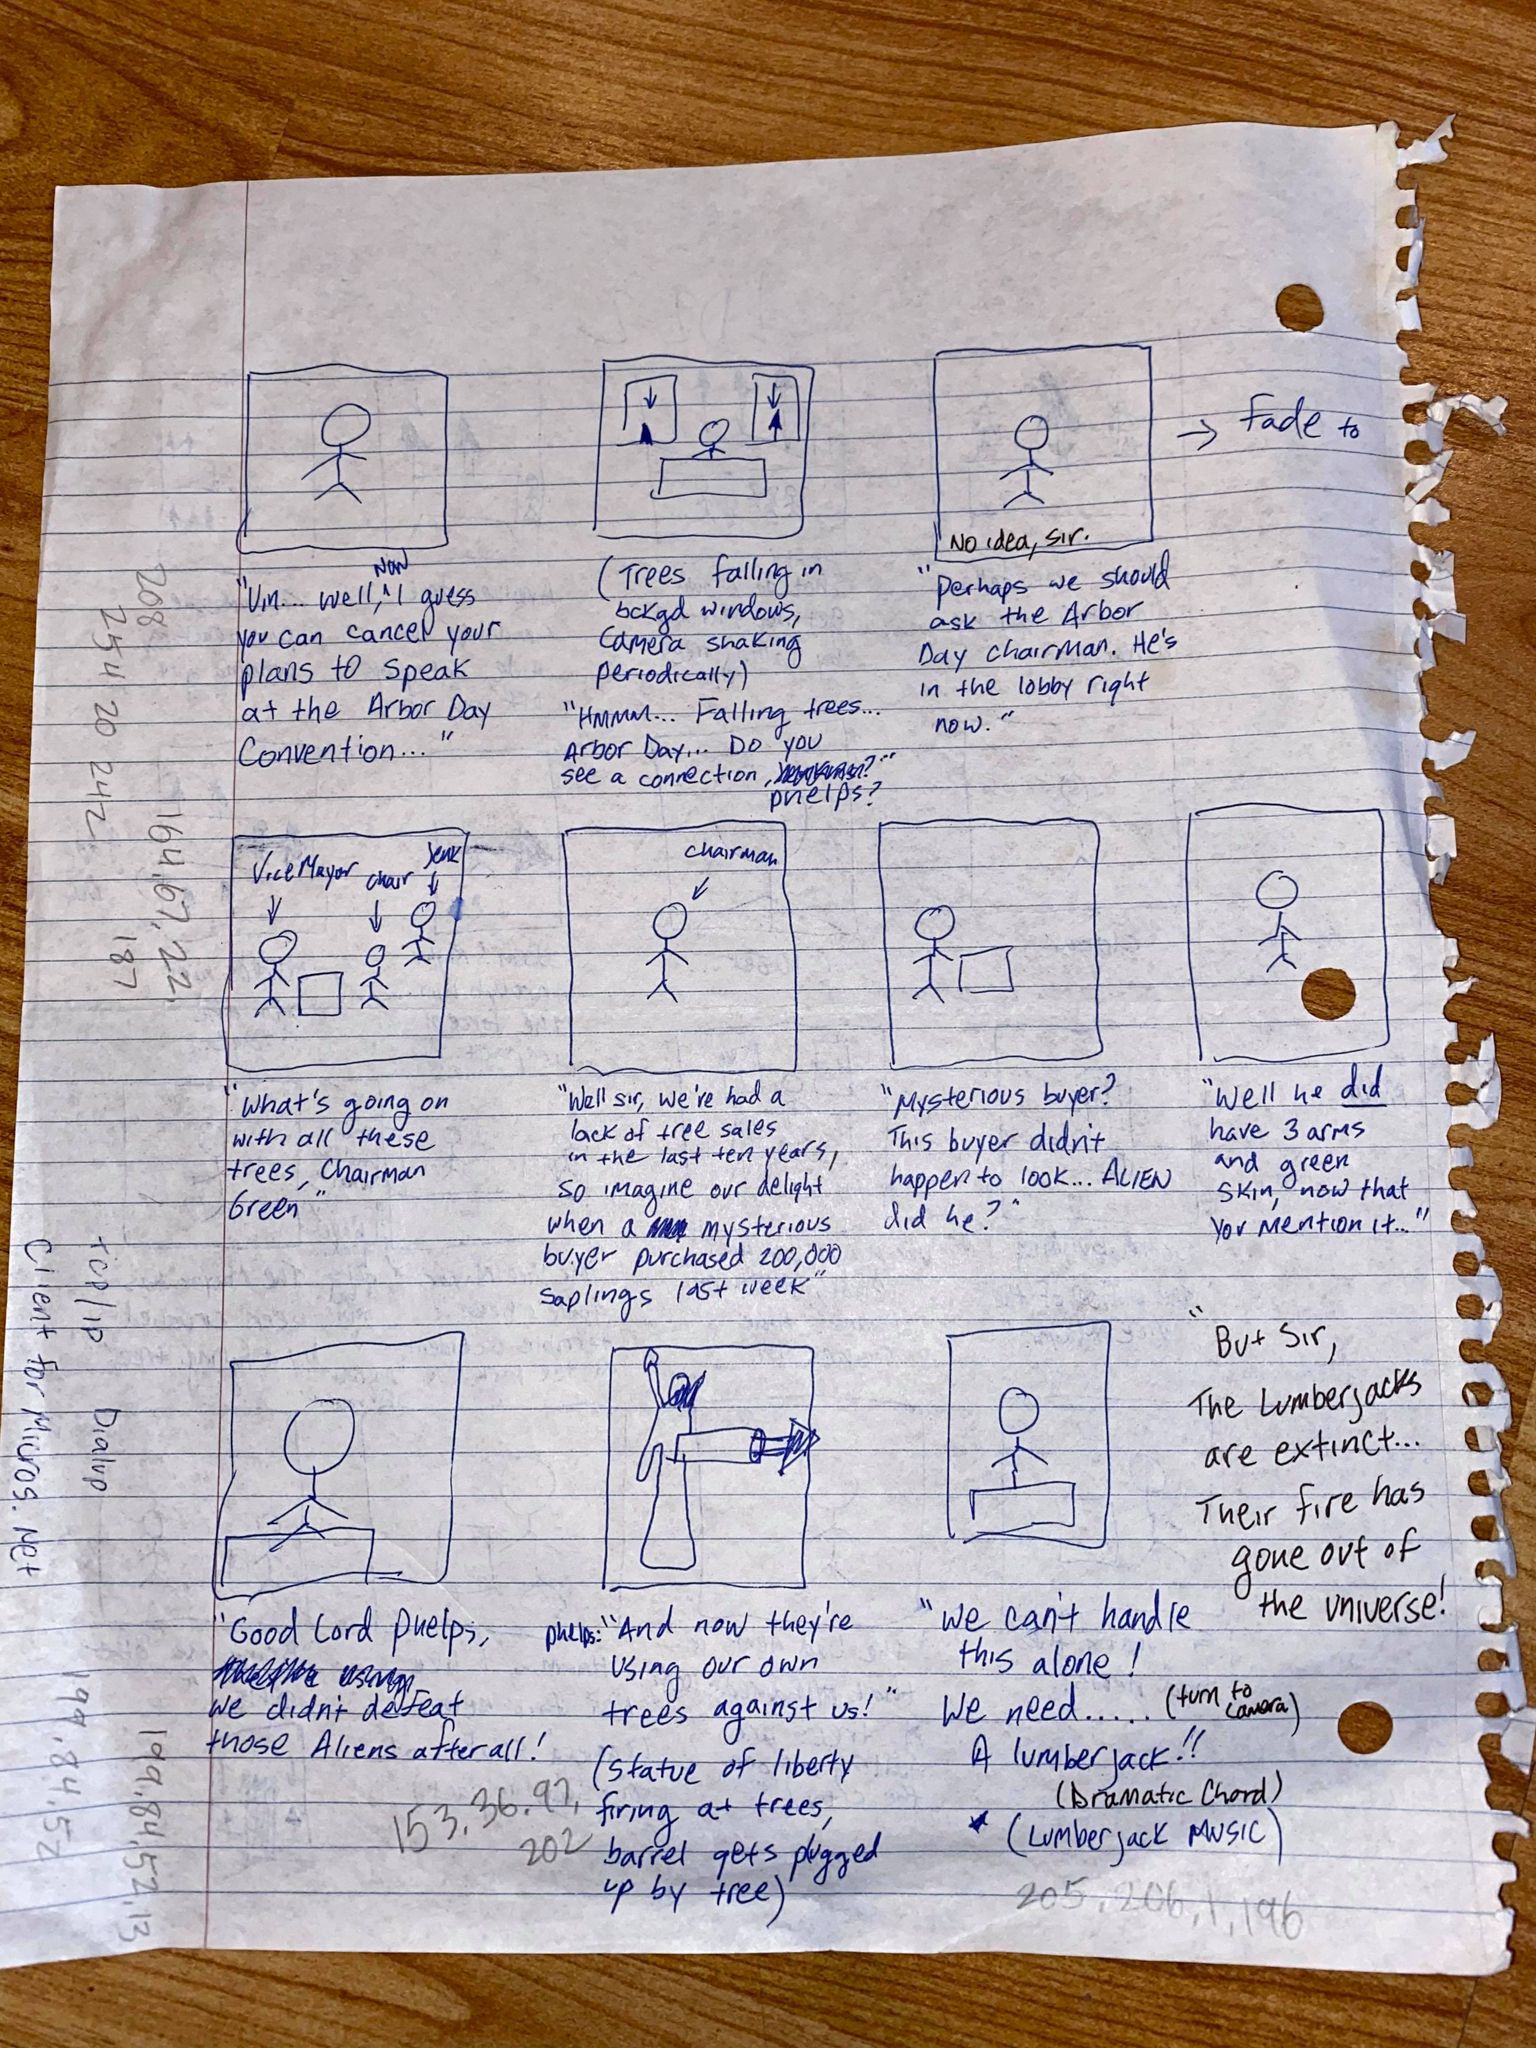 → Fade to
No idea, sir.
Now
"Um... well, ^ I guess
you can cancel your
plans to speak
at the Arbor Day
Convention..."
(Trees falling in
bckgd windows,
camera shaking
periodically)
"HMMM... Falling trees...
Arbor Day... Do you
see a connection,
phelps?
"Perhaps we should
ask the Arbor
Day chairman. He's
in the lobby right
now."
Vice Mayor
chair
Jenk
chairman
"What's going on
with all these
trees, Chairman
Green"
"Well sir, we're had a
lack of tree sales
in the last ten years,
so imagine our delight
when a mysterious
buyer purchased 200,000
saplings last week"
"Mysterious buyer?
This buyer didn't
happen to look... ALIEN
did he?"
"Well he did
have 3 arms
and green
skin, now that
you mention it..."
"Good Lord Phelps,
we didn't defeat
those Aliens after all!
Phelps: "And now they're
using our own
trees against us!"
(Statue of liberty
firing at trees,
barrel gets plugged
up by tree)
"We can't handle
this alone!
We need..... (turn to
camera)
A lumberjack!!
(Dramatic Chord)
(Lumberjack MUSIC)
"But Sir,
The Lumberjacks
are extinct...
Their fire has
gone out of
the universe!
208
254 20 242
164,67,22,
187
tcp/ip Dialup
Client for Micros. Net
199.84,52,13
199.84,52
153,36.97,
202
205.206,1,196